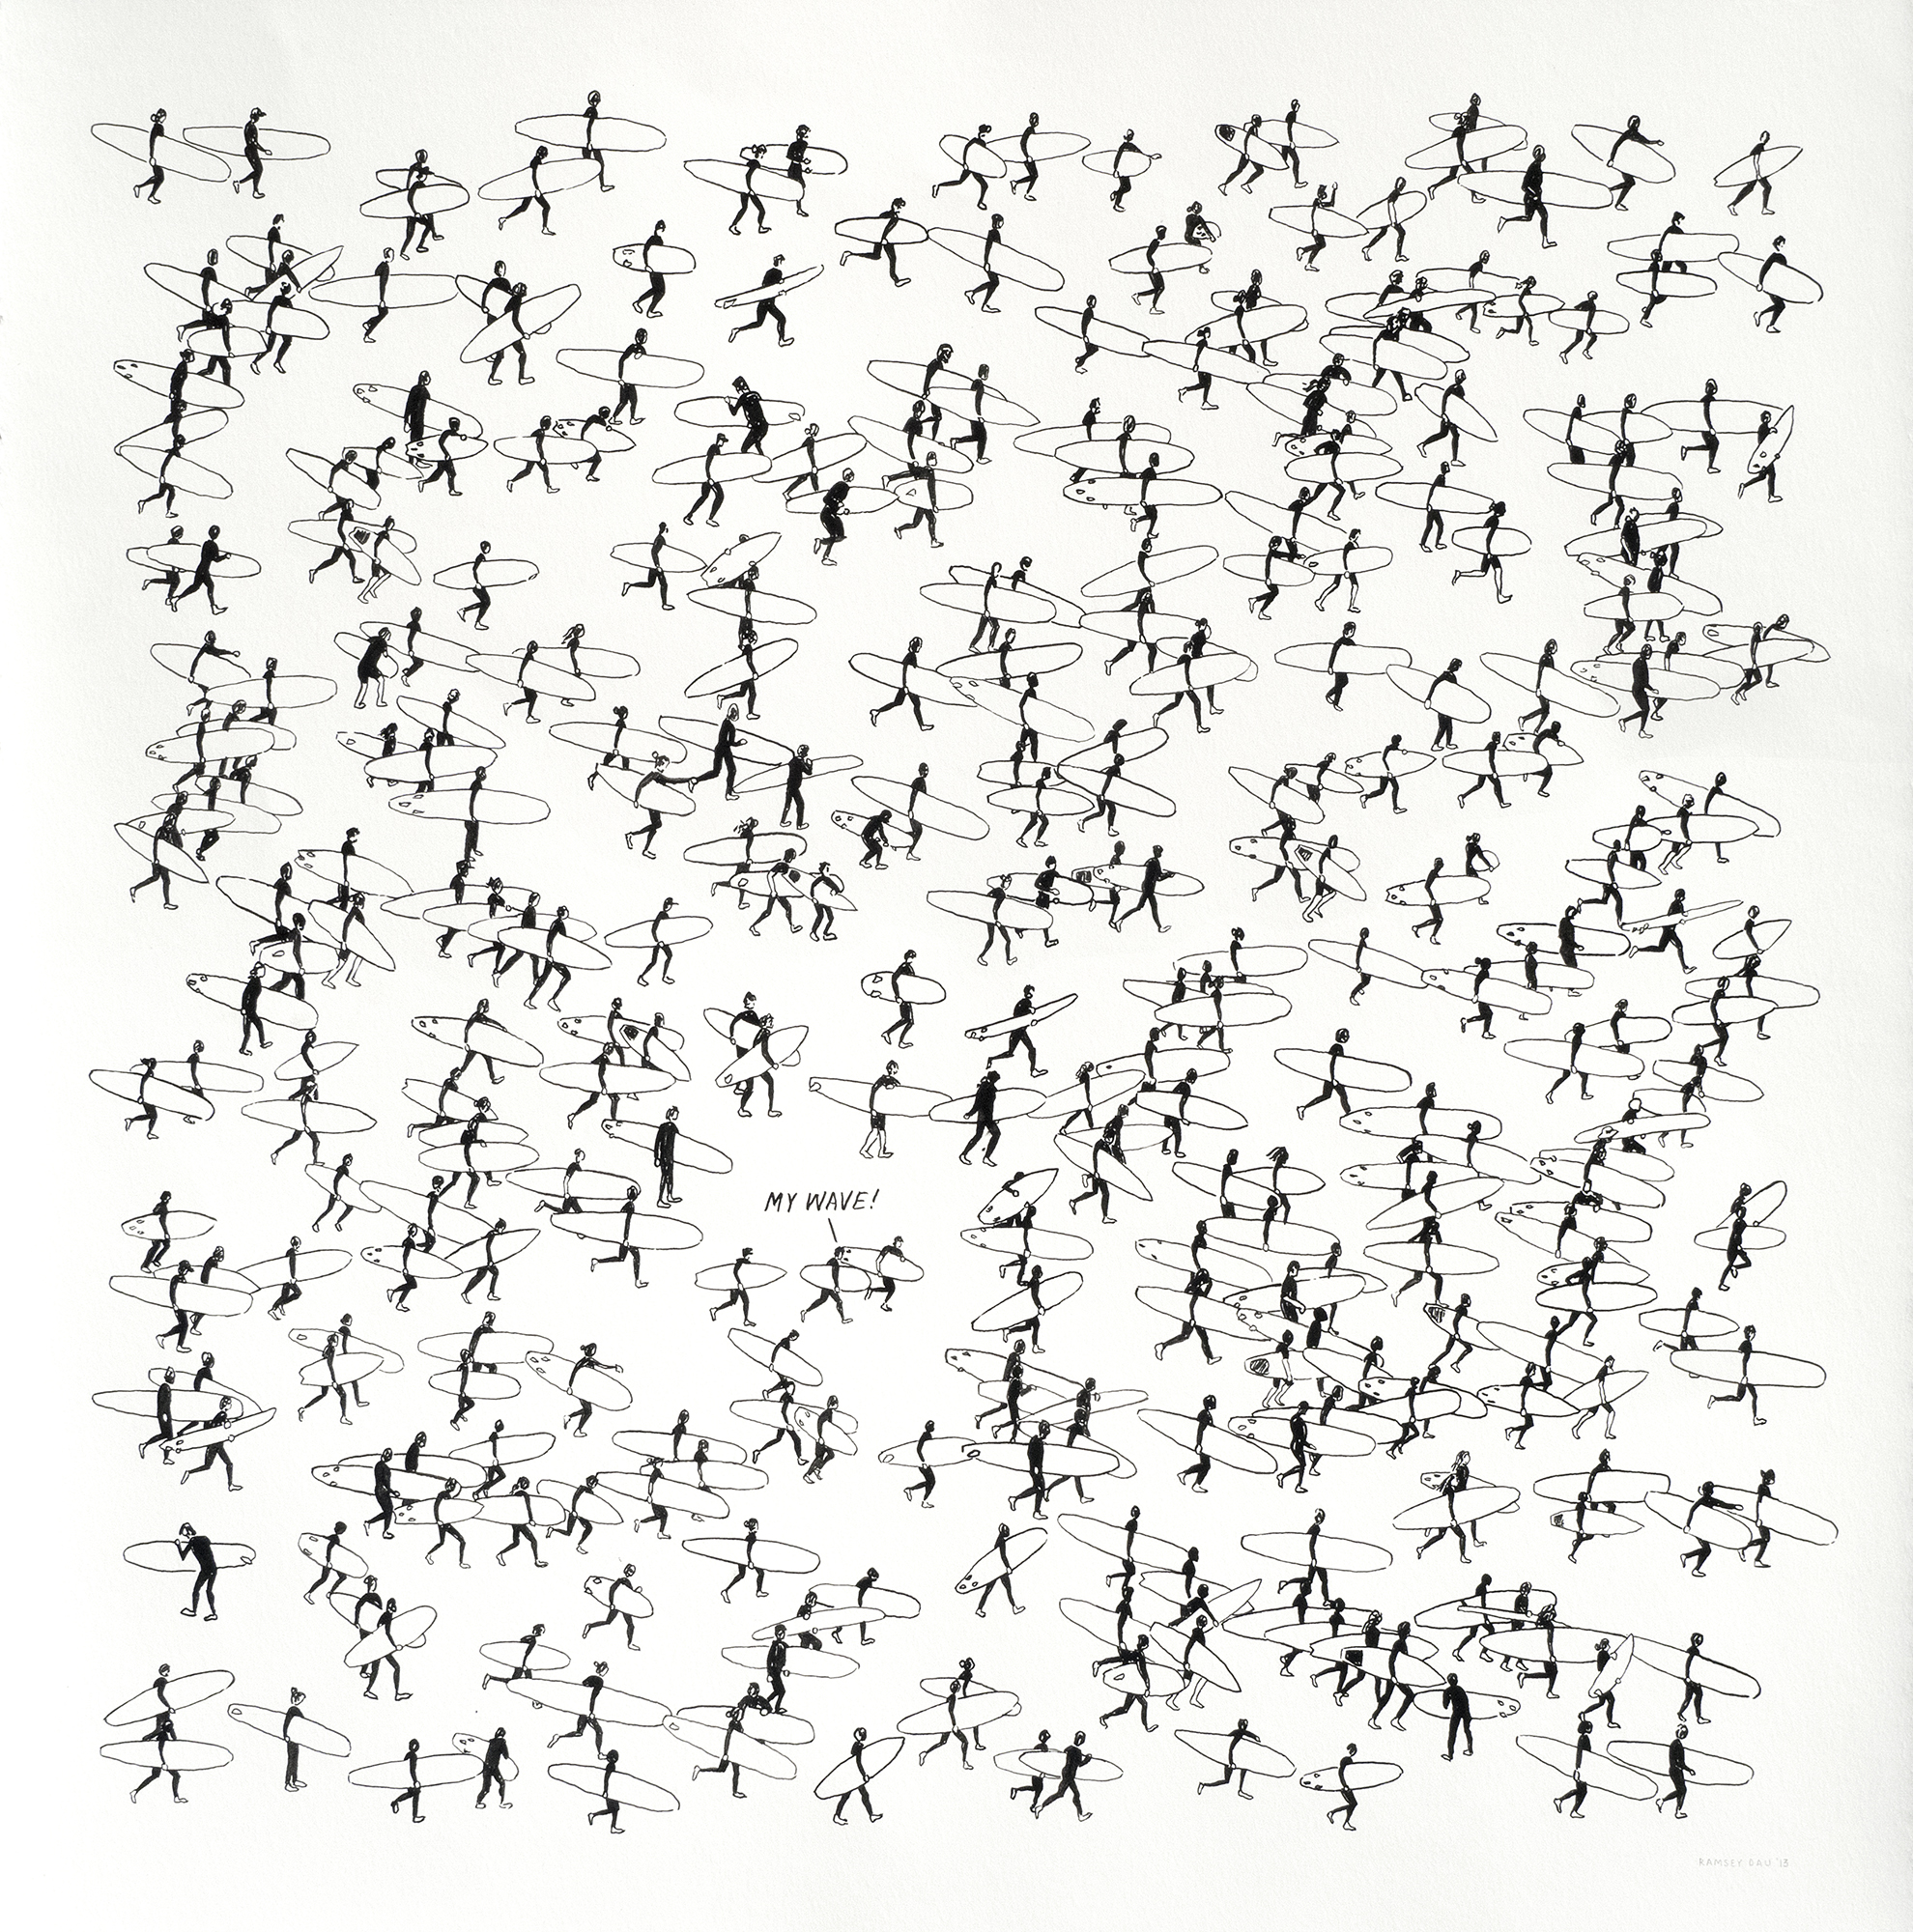 MY WAVE!
RAMSEY DAU '13